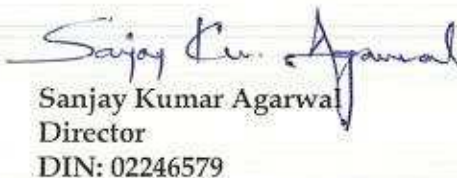 Sanjay Ku. Agarwal
Sanjay Kumar Agarwal
Director
DIN: 02246579